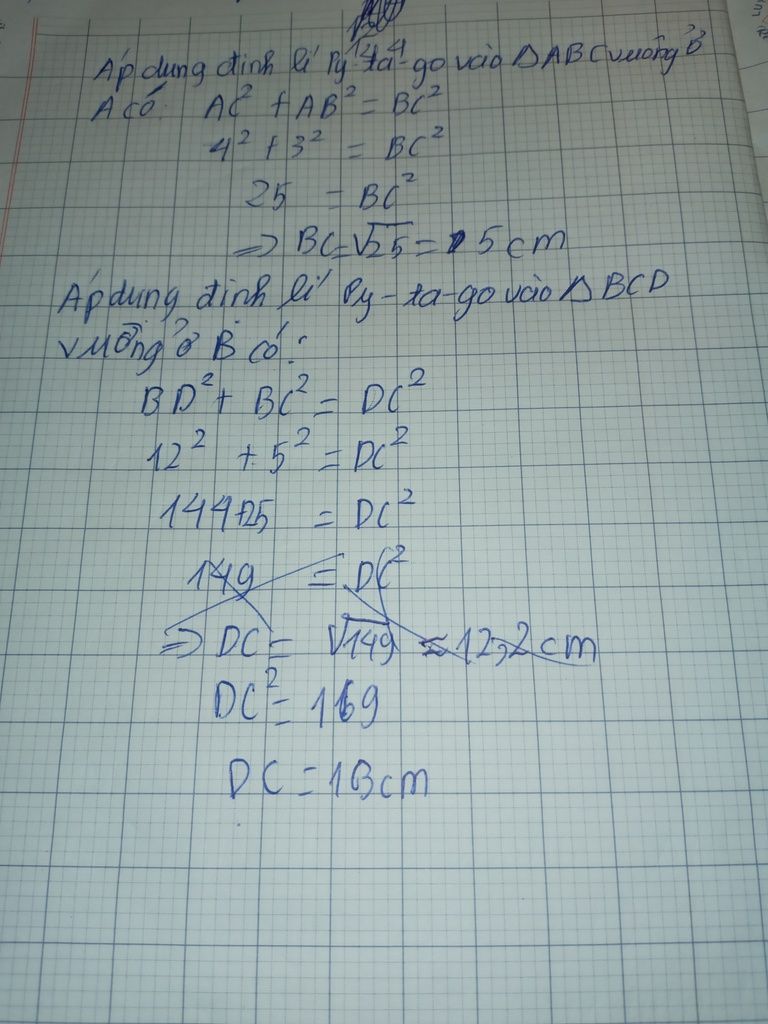 Áp dụng định lí Py-ta-go vào ΔABC vuông ở
A có: AC² + AB² = BC²
4² + 3² = BC²
25 = BC²
=> BC = √25 = 5 cm
Áp dụng định lí Py-ta-go vào ΔBCD
vuông ở B có:
BD² + BC² = DC²
12² + 5² = DC²
144+25 = DC²
149 = DC²
=> DC = √149 ≈ 12,2 cm
DC² = 169
DC = 13cm